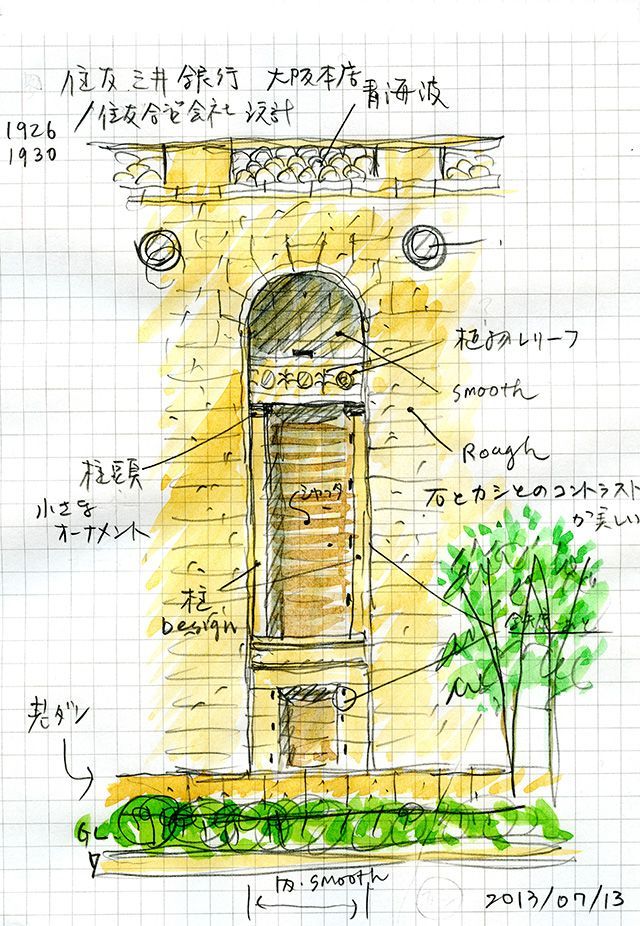 住友三井銀行 大阪本店
/住友合資会社 設計
青海波
1926
1930
植物レリーフ
smooth
Rough
石とカシとのコントラスト
が美しい
柱頭
小さな
オーナメント
シャッター
柱
Design
花ダン
GL
巾. smooth
2013/07/13